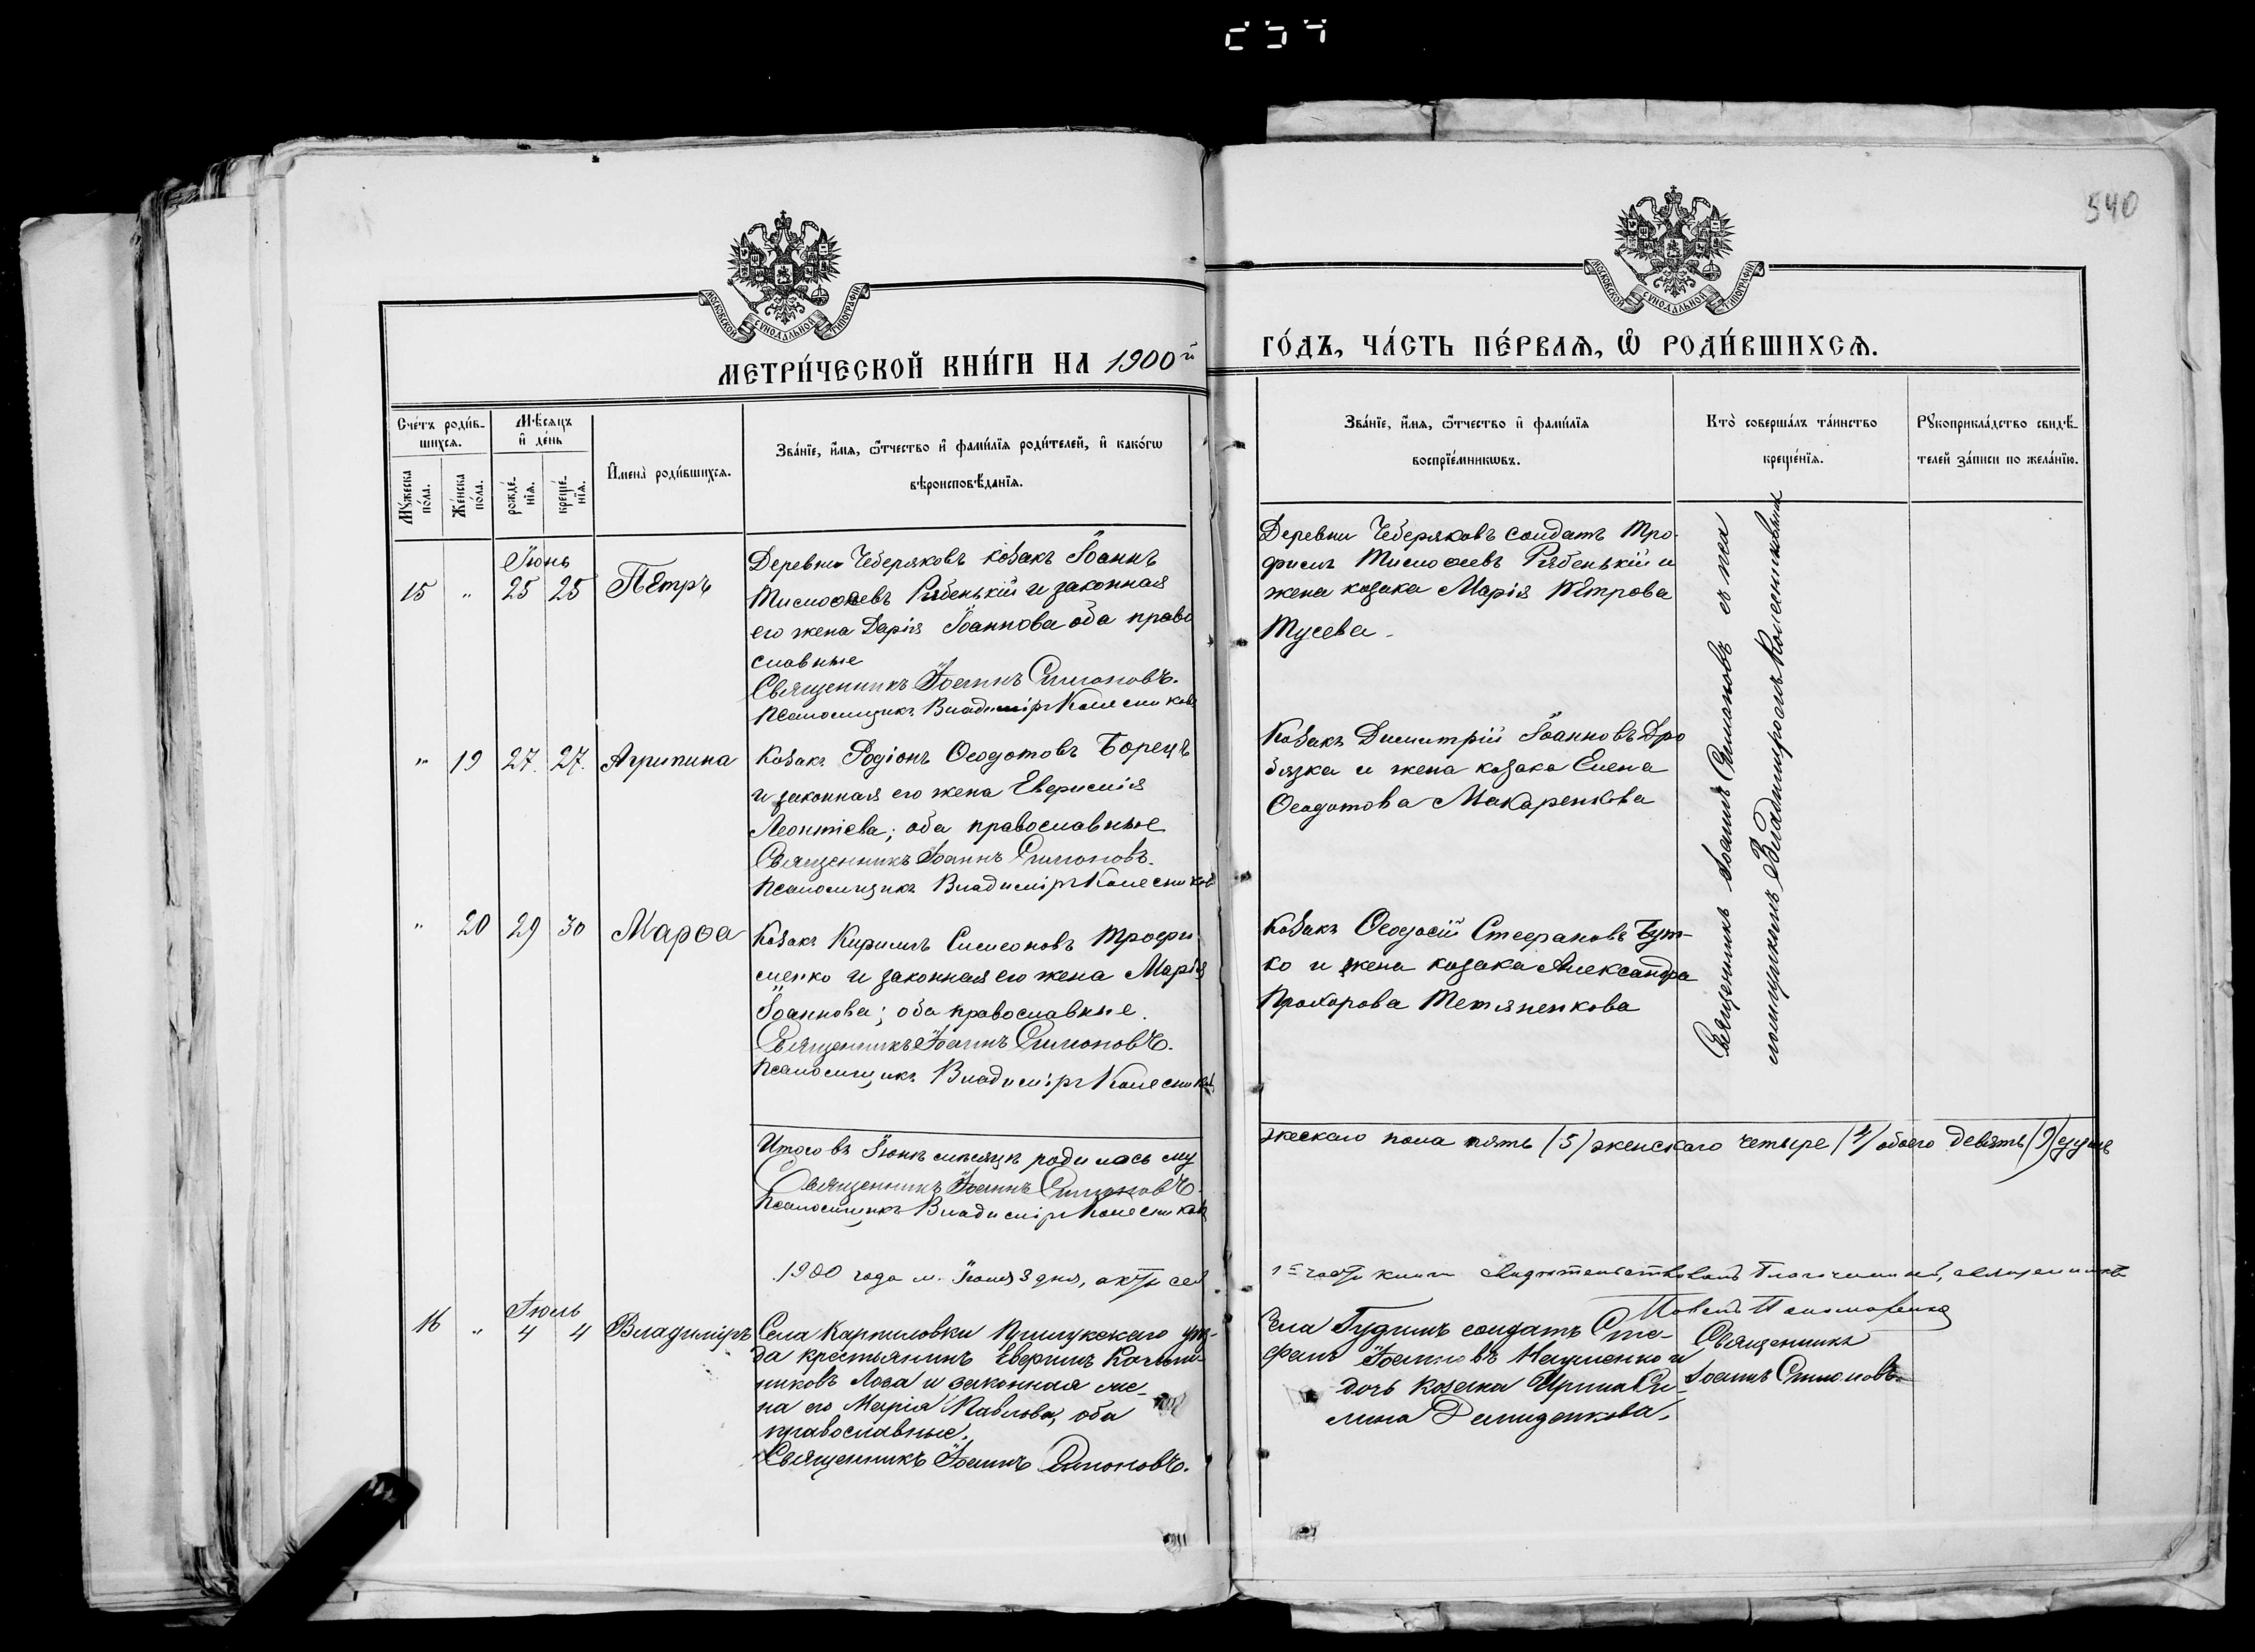 540
МОСКОВСКОЙ СѴНОДАЛЬНОЙ ТИПОГРАФІИ
МОСКОВСКОЙ СѴНОДАЛЬНОЙ ТИПОГРАФІИ
МЕТРИ́ЧЕСКОЙ КНИ́ГИ НА 1900й
ГО́ДЪ, ЧА́СТЬ ПЕ́РВАѦ, Ѽ РОДИ́ВШИХСѦ.
Счетъ роди́в-
шихсѧ.
Мꙋжеска
по́ла.
Же́нска
по́ла.
Мѣсѧцъ
и҆ де́нь
рожде́-
нїѧ.
креще́-
нїѧ.
И҆мена̀ роди́вшихсѧ.
Зва́нїе, и҆́мѧ, ѻ҆́тчество и҆ фами́лїѧ роди́телей, и҆ како́гѡ
вѣроисповѣ́данїѧ.
Зва́нїе, и҆́мѧ, ѻ҆́тчество и҆ фами́лїѧ
воспрїе́мникѡвъ.
Кто̀ соверша́лъ та́инство
креще́нїѧ.
Рꙋкоприкла́дство свидѣ́-
телей за́писи по жела́нїю.
Іюнь
15 " 25 25 Пѣтръ
Деревни Чеберяковъ козакъ Іоаннъ
Тимоѳеевъ Рябенькій и законная
его жена Дарія Іоаннова оба право
славные
Священникъ Іоаннъ Симоновъ.
Псаломщикъ Владиміръ Колесниковъ
Деревни Чеберяковъ солдатъ Тро-
фимъ Тимоѳеевъ Рябенькій и
жена козака Марія Пѣтрова
Гусева.
" 19 27. 27. Агрипина
Козакъ Родіонъ Ѳеодотовъ Борецъ
и законная его жена Евфимія
Леонтіева; оба православные
Священникъ Іоаннъ Симоновъ.
Псаломщикъ Владиміръ Колесниковъ
Козакъ Димитрій Іоанновъ Дро
бязка и жена козака Елена
Ѳеодотова Макаренкова
" 20 29 30 Марѳа
Козакъ Кирилъ Симеоновъ Трофи
менко и законная его жена Марія
Іоаннова; оба православные.
Священникъ Іоаннъ Симоновъ.
Псаломщикъ Владиміръ Колесниковъ
Козакъ Ѳеодосій Стефановъ Бут-
ко и жена козака Александра
Прохорова Тетяненкова
Священникъ Іоаннъ Симоновъ съ пса
ломщикомъ Владиміромъ Колесниковымъ
Итого въ Іюнѣ мѣсяцѣ родилось му
жескаго пола пять (5) женскаго четыре (4) обоего девять (9) душъ
Священникъ Іоаннъ Симоновъ.
Псаломщикъ Владиміръ Колесниковъ
1900 года м. Іюля 3 дня, сей
1ю часть книги свидѣтельствовалъ Благочинный, священникъ
Іюль
16 " 4 4 Владиміръ
Села Карпиловки Прилукскаго уѣз-
да крестьянинъ Евфимъ
никовъ Лоза и законная же-
на его Марія Павлова, оба
православные.
Священникъ Іоаннъ Симоновъ.
Села Гудимъ солдатъ Сте-
фанъ Іоанновъ Науменко и
дочь козака Ирина Си-
мона Демиденкова.
Священникъ
Іоаннъ Симоновъ.